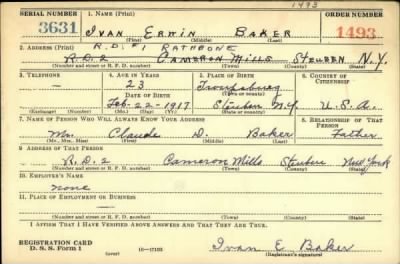 1493
SERIAL NUMBER 1. NAME (Print) ORDER NUMBER
3631 IVAN ERWIN BAKER 1493
(First) (Middle) (Last)
2. ADDRESS (Print) R.D. #1 RATHBONE
R.D.2 CAMERON MILLS STEUBEN N.Y.
(Number and street or R. F. D. number) (Town) (County) (State)
3. TELEPHONE 4. AGE IN YEARS 5. PLACE OF BIRTH 6. COUNTRY OF CITIZENSHIP
— 23 Troupsburg
DATE OF BIRTH (Town or county)
Feb-22-1917 Steuben N.Y. U.S.A.
(Exchange) (Number) (Mo.) (Day) (Yr.) (State or country)
7. NAME OF PERSON WHO WILL ALWAYS KNOW YOUR ADDRESS 8. RELATIONSHIP OF THAT PERSON
Mr. Claude D. Baker Father
(Mr., Mrs., Miss) (First) (Middle) (Last)
9. ADDRESS OF THAT PERSON
R.D.2 Cameron Mills Steuben New York
(Number and street or R. F. D. number) (Town) (County) (State)
10. EMPLOYER'S NAME
none
11. PLACE OF EMPLOYMENT OR BUSINESS
(Number and street or R. F. D. number) (Town) (County) (State)
I AFFIRM THAT I HAVE VERIFIED ABOVE ANSWERS AND THAT THEY ARE TRUE.
REGISTRATION CARD
D. S. S. Form 1 (over) 16—17105 Ivan E Baker
(Registrant's signature)